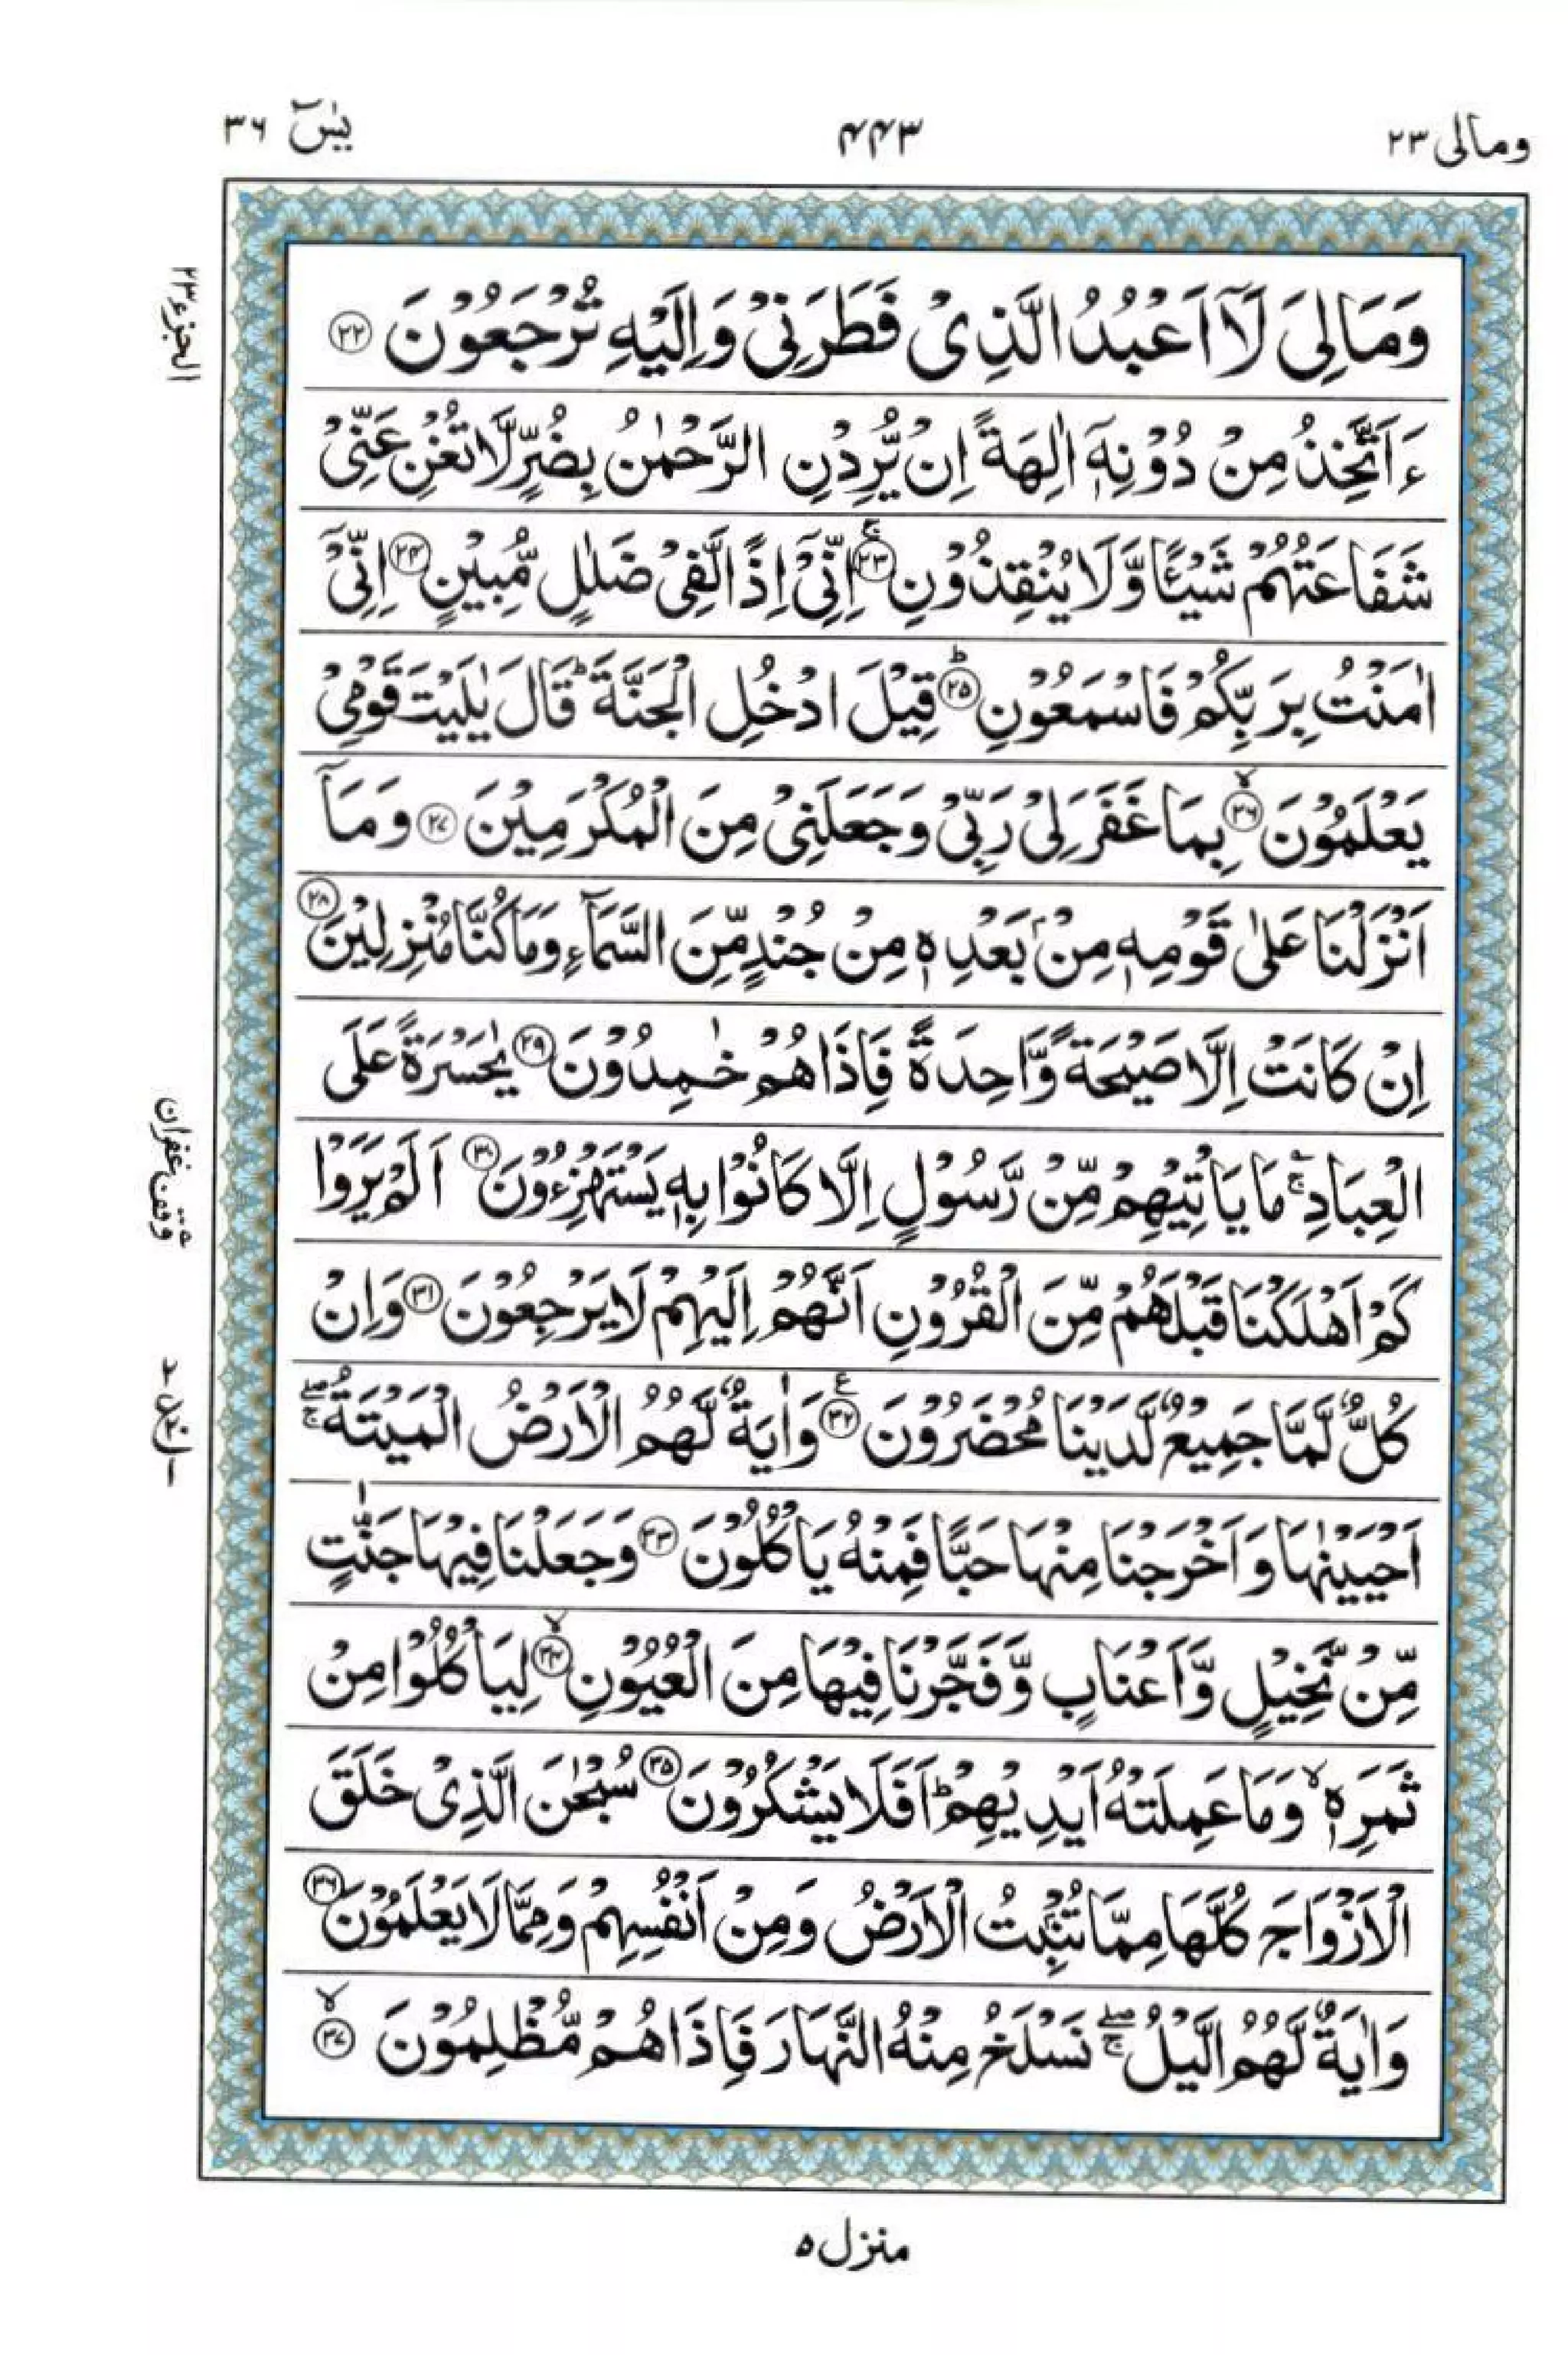 ومالی ۲۳
۴۴۳
یٰسٓ ۳۶
وَمَا لِیَ لَاۤ اَعْبُدُ الَّذِیْ فَطَرَنِیْ وَاِلَیْهِ تُرْجَعُوْنَ ۲۲
ءَاَتَّخِذُ مِنْ دُوْنِهٖۤ اٰلِهَةً اِنْ یُّرِدْنِ الرَّحْمٰنُ بِضُرٍّ لَّا تُغْنِ عَنِّیْ
شَفَاعَتُهُمْ شَیْـًٔا وَّلَا یُنْقِذُوْنِ ۚ۲۳ اِنِّیْۤ اِذًا لَّفِیْ ضَلٰلٍ مُّبِیْنٍ ۲۴ اِنِّیْۤ
اٰمَنْتُ بِرَبِّكُمْ فَاسْمَعُوْنِ ؕ۲۵ قِیْلَ ادْخُلِ الْجَنَّةَ ؕ قَالَ یٰلَیْتَ قَوْمِیْ
یَعْلَمُوْنَ ۙ۲۶ بِمَا غَفَرَ لِیْ رَبِّیْ وَجَعَلَنِیْ مِنَ الْمُكْرَمِیْنَ ۲۷ وَمَاۤ
اَنْزَلْنَا عَلٰی قَوْمِهٖ مِنْۢ بَعْدِهٖ مِنْ جُنْدٍ مِّنَ السَّمَآءِ وَمَا كُنَّا مُنْزِلِیْنَ ۲۸
اِنْ كَانَتْ اِلَّا صَیْحَةً وَّاحِدَةً فَاِذَا هُمْ خٰمِدُوْنَ ۲۹ یٰحَسْرَةً عَلَی
الْعِبَادِ ۚؔ مَا یَاْتِیْهِمْ مِّنْ رَّسُوْلٍ اِلَّا كَانُوْا بِهٖ یَسْتَهْزِءُوْنَ ۳۰ اَلَمْ یَرَوْا
كَمْ اَهْلَكْنَا قَبْلَهُمْ مِّنَ الْقُرُوْنِ اَنَّهُمْ اِلَیْهِمْ لَا یَرْجِعُوْنَ ۳۱ وَاِنْ
كُلٌّ لَّمَّا جَمِیْعٌ لَّدَیْنَا مُحْضَرُوْنَ ۳۲ ع وَاٰیَةٌ لَّهُمُ الْاَرْضُ الْمَیْتَةُ ۖۚ
اَحْیَیْنٰهَا وَاَخْرَجْنَا مِنْهَا حَبًّا فَمِنْهُ یَاْكُلُوْنَ ۳۳ وَجَعَلْنَا فِیْهَا جَنّٰتٍ
مِّنْ نَّخِیْلٍ وَّاَعْنَابٍ وَّفَجَّرْنَا فِیْهَا مِنَ الْعُیُوْنِ ۙ۳۴ لِیَاْكُلُوْا مِنْ
ثَمَرِهٖ ۙ وَمَا عَمِلَتْهُ اَیْدِیْهِمْ ؕ اَفَلَا یَشْكُرُوْنَ ۳۵ سُبْحٰنَ الَّذِیْ خَلَقَ
الْاَزْوَاجَ كُلَّهَا مِمَّا تُنْۢبِتُ الْاَرْضُ وَمِنْ اَنْفُسِهِمْ وَمِمَّا لَا یَعْلَمُوْنَ ۳۶
وَاٰیَةٌ لَّهُمُ الَّیْلُ ۖۚ نَسْلَخُ مِنْهُ النَّهَارَ فَاِذَا هُمْ مُّظْلِمُوْنَ ۙ۳۷
الجزء ۲۳
وقف غفران
منزل ۵